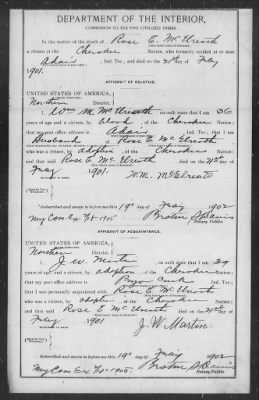 DEPARTMENT OF THE INTERIOR,
COMMISSION TO THE FIVE CIVILIZED TRIBES.
In the matter of the death of Rose E. McElreath
a citizen of the Cherokee Nation, who formerly resided at or near
Adair, Ind. Ter., and died on the 21st day of May
1901.
AFFIDAVIT OF RELATIVE.
UNITED STATES OF AMERICA,
Northern District.
I, Wm. M. McElreath on oath state that I am 36
years of age and a citizen, by blood, of the Cherokee Nation;
that my post office address is Adair, Ind. Ter.; that I
husband Rose E. McElreath
who was a citizen, by adoption, of the Cherokee Nation;
and that said Rose E. McElreath died on the 21st day of
May, 1901.
W.M. McElreath
Subscribed and sworn to before me this 19" day of May 1902
My Com Ex 1905.
Notary Public.
AFFIDAVIT OF ACQUAINTANCE.
UNITED STATES OF AMERICA,
Northern District.
I, J. W. on oath state that I am 39
years of age, and a citizen, by adoption, of the Cherokee Nation;
that my post office address is Pryor Creek Ind. Ter.;
that I was personally acquainted with Rose E. McElreath
who was a citizen, by adoption, of the Cherokee Nation;
and that said Rose E. McElreath died on the 21st day of
May, 1901
J. W. Martin
Subscribed and sworn to before me this 19" day of May 1902
My Com Ex 1905.
Notary Public.